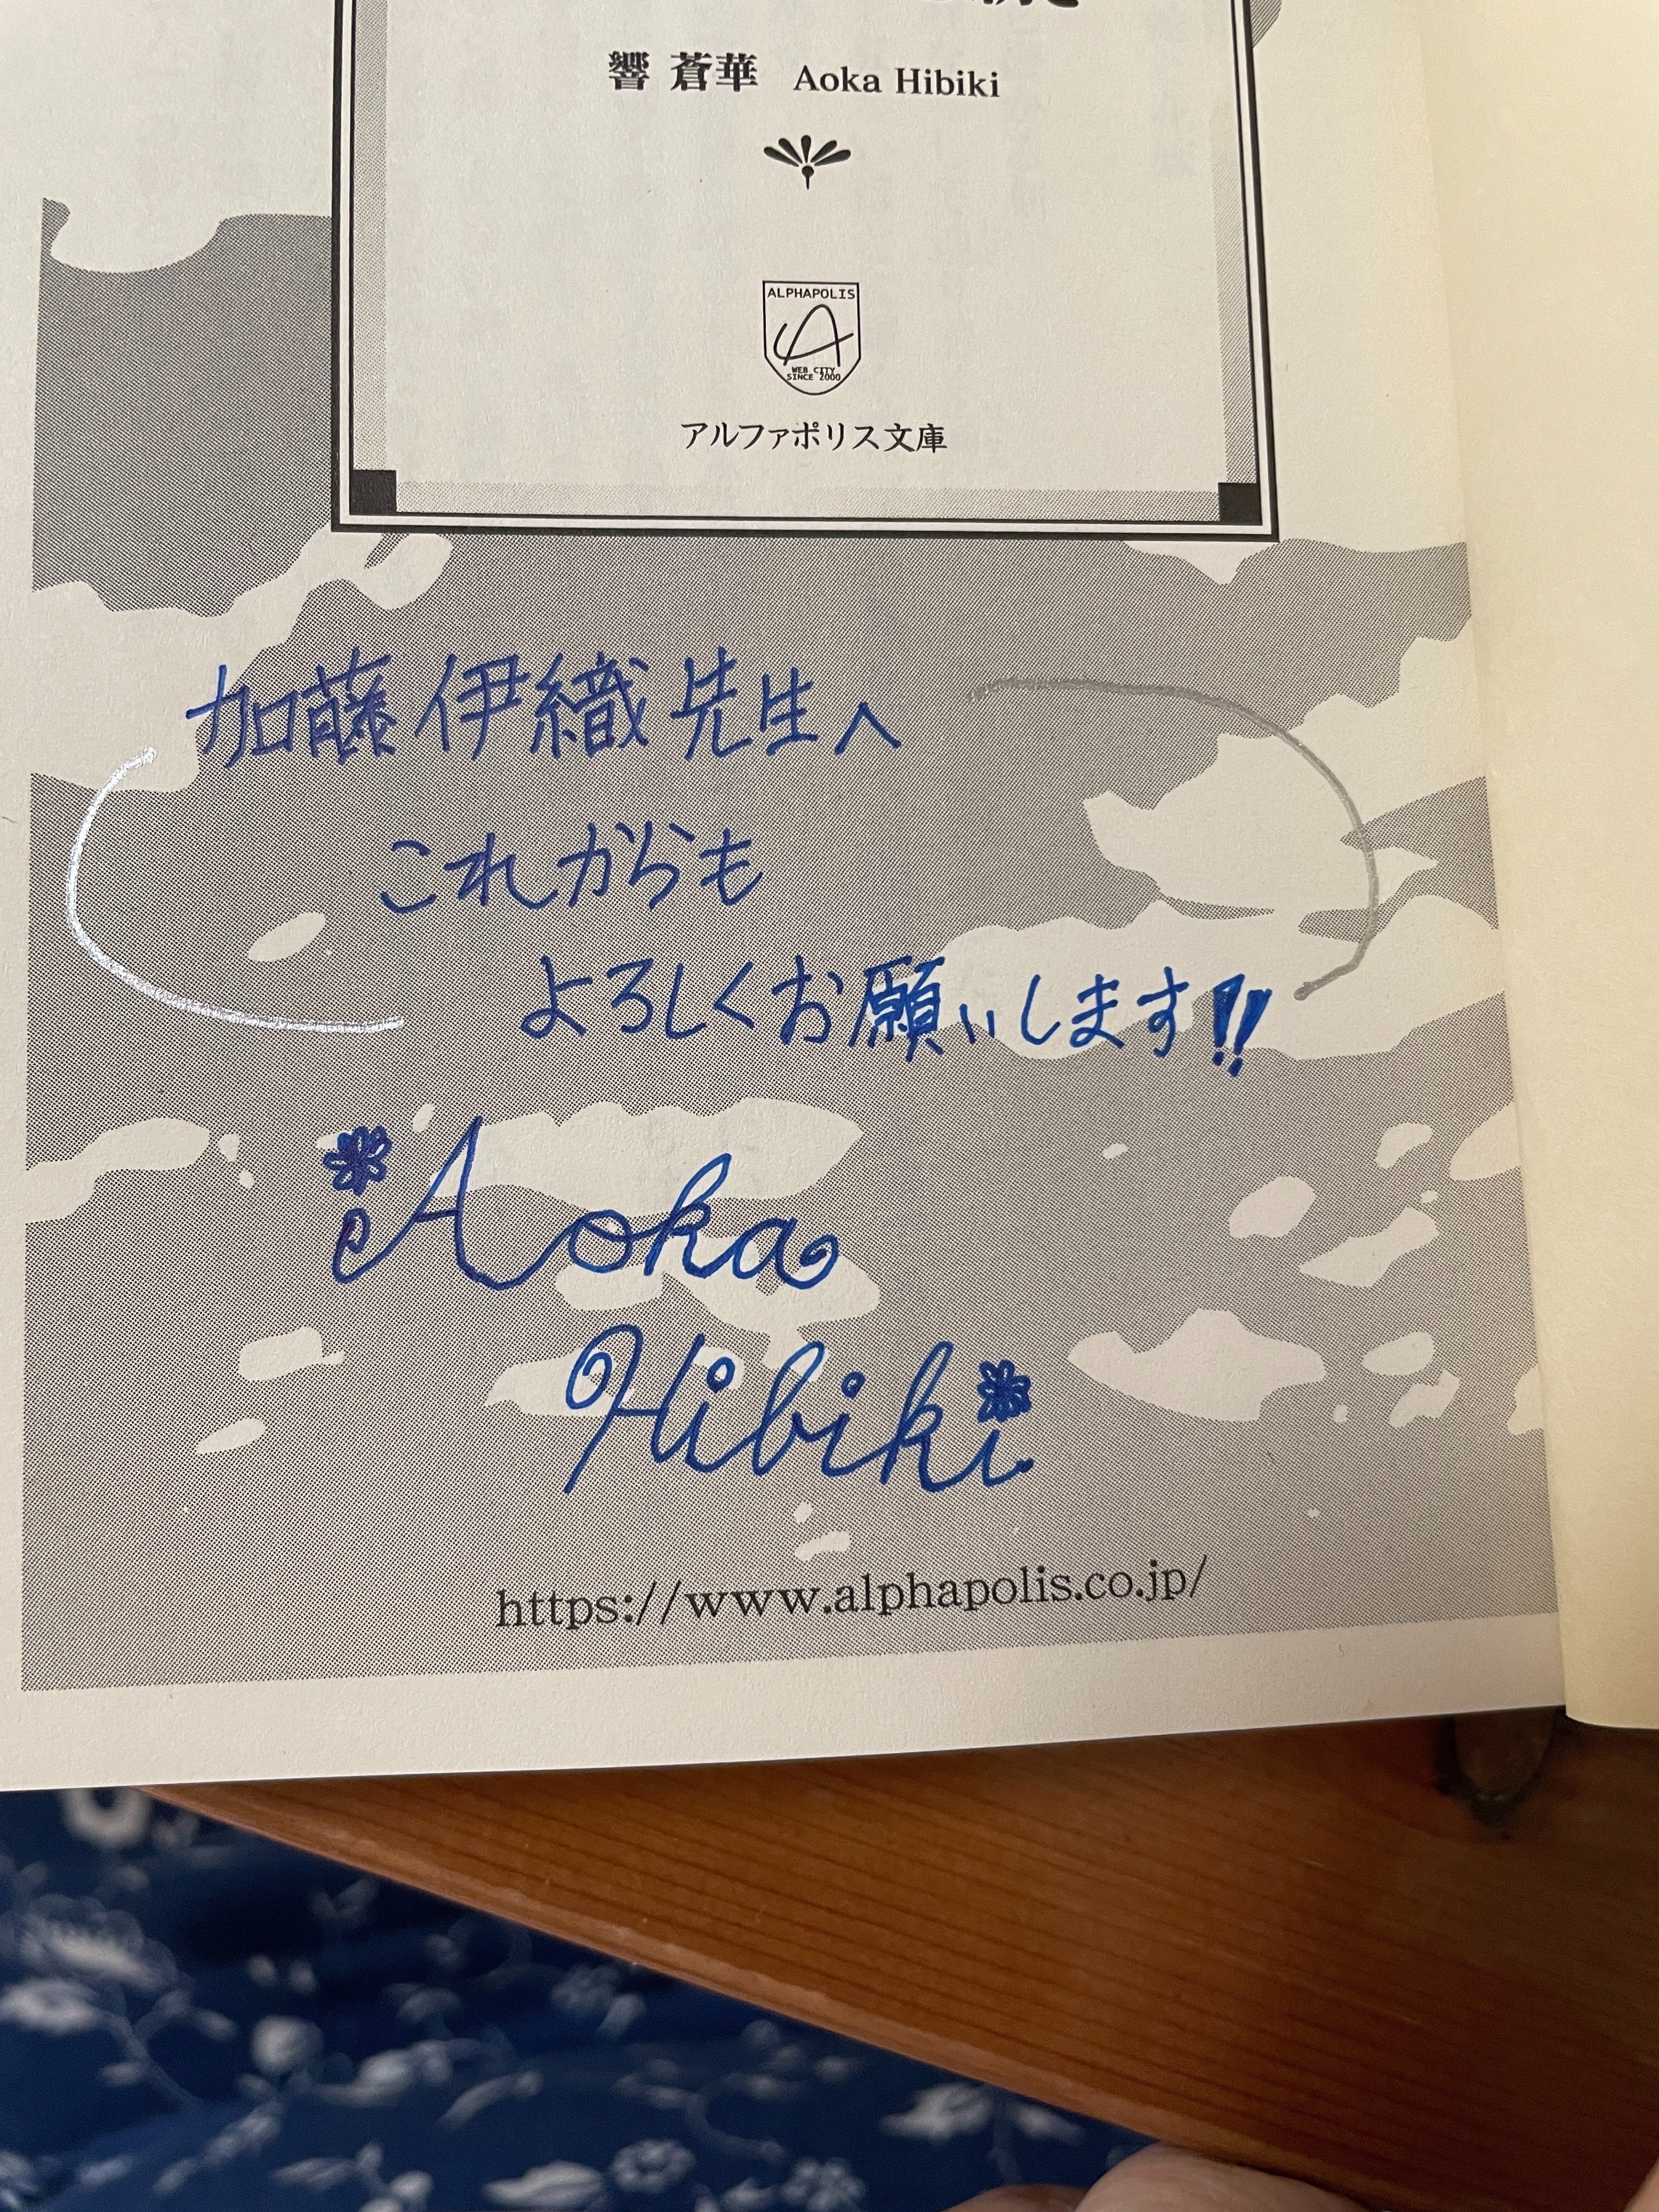 響 蒼華 Aoka Hibiki
ALPHAPOLIS
WEB CITY
SINCE 2000
アルファポリス文庫
加藤伊織先生へ
これからも
よろしくお願いします!!
Aoka
Hibiki
https://www.alphapolis.co.jp/